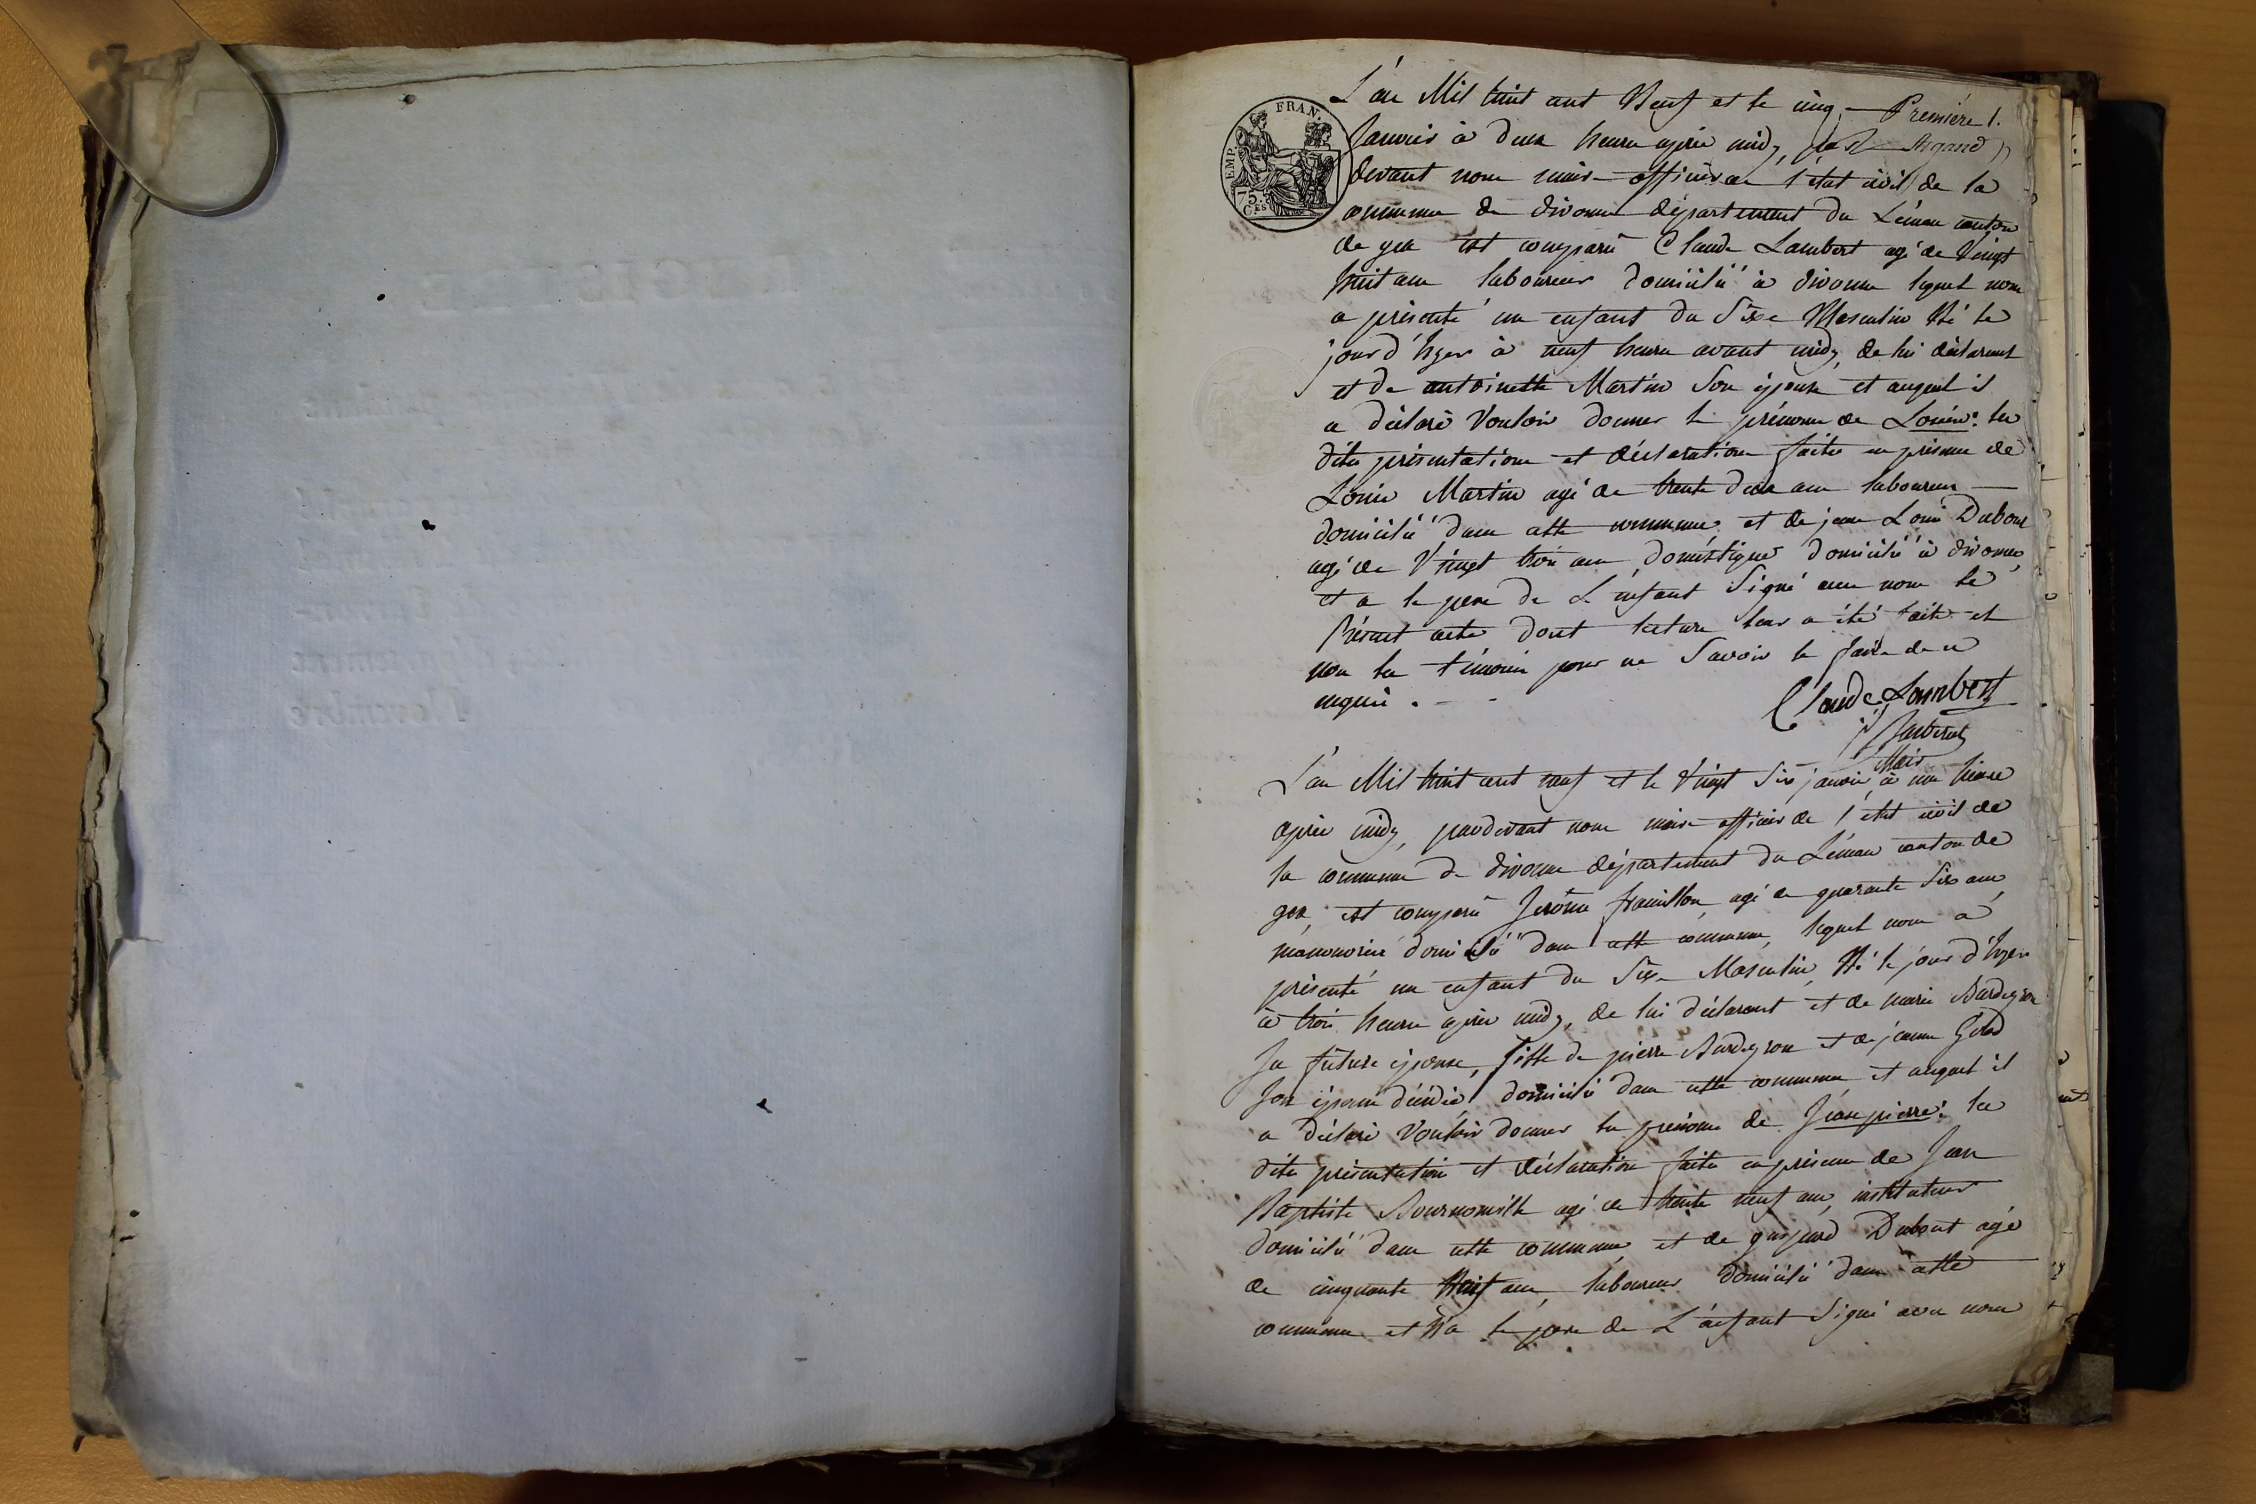 L'an Mil huit cent Neuf et le cinq Première 1.
Janvier à deux heures après midy, par Argand
devant nous maire officier de l'état civil de la
commune de divonne département du Léman canton
de gex est comparu Claude Lambert agé de Vingt
huit ans laboureur domicilié à divonne lequel nous
a présenté un enfant du Sexe Masculin Né le
jour d'hyer à neuf heures avant midy, de lui déclarant
et de antoinette Martin Son épouse et auquel il
a déclaré Vouloir donner le prénom de Louis: les
dites présentation et déclaration faites en présence de
Louis Martin agé de trente deux ans laboureur
domicilié dans cette commune et de jean Louis Dubout
agé de Vingt trois ans doméstique domicilié à divonne
et a le pere de L'enfant Signé avec nous le
Présent acte dont lecture leur a été faite et
non les témoins pour ne Savoir le faire de ce
requis.
Claude Lambert
Maire
L'an Mil huit cent neuf et le Vingt Six janvier à une heure
après midy, pardevant nous maire officier de l'état civil de
la commune de divonne département du Léman canton de
gex, est comparu Jerôme frauillon agé de quarante Six ans
manouvrier domicilié dans cette commune, lequel nous a
présenté un enfant du Sexe Masculin, Né le jour d'hyer
à trois heures après midy, de lui déclarant et de marie
Sa future épouse, fille de pierre et de jeanne Girod
Son épouse décédée, domicilié dans cette commune et auquel il
a déclaré Vouloir donner les prénoms de Jean pierre: les
dites présentation et déclaration faites en présence de Jean
Baptiste Bournonville agé de trente neuf ans, instituteur
domicilié dans cette commune et de gaspard Dubout agé
de cinquante huit ans, laboureur domicilié dans cette
commune et N'a le pere de L'enfant Signé avec nous
EMP. FRAN.
75.
C.ES